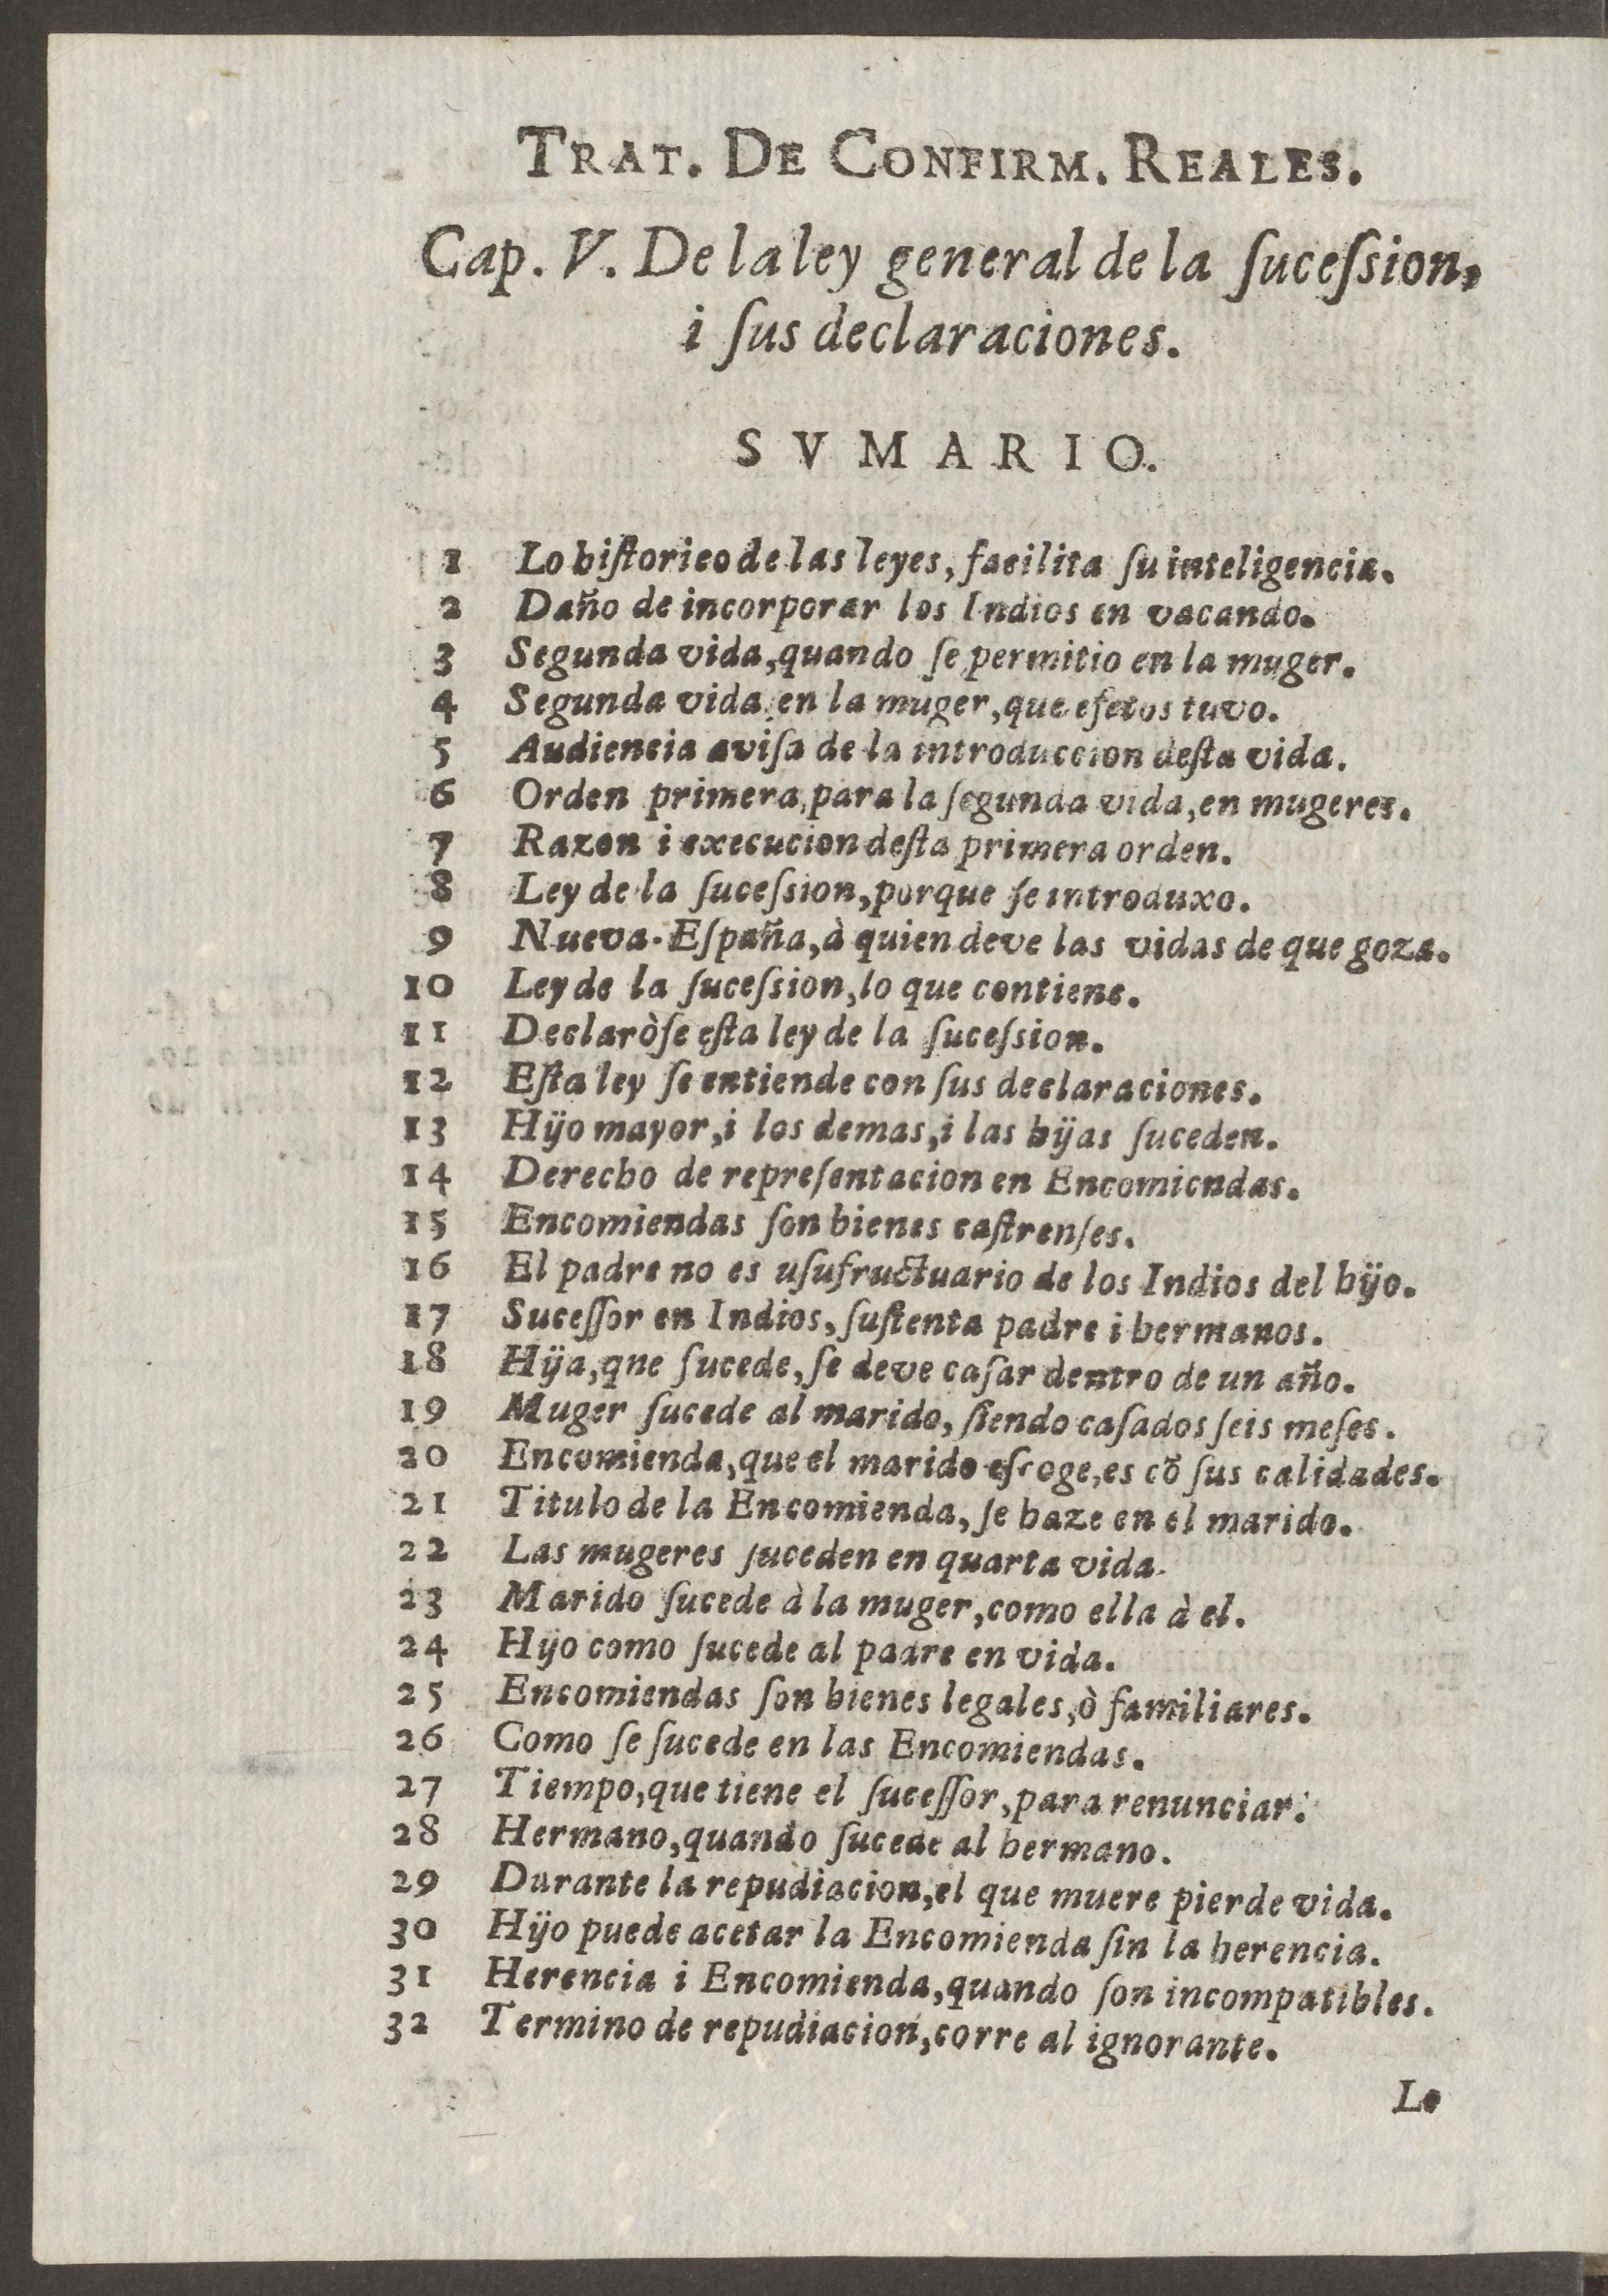 TRAT. DE CONFIRM. REALES.
Cap. V. De la ley general de la ſuceſsion,
i ſus declaraciones.
SVMARIO.
1 Lo hiſtorico de las leyes, facilita ſu inteligencia.
2 Daño de incorporar los Indios en vacando.
3 Segunda vida, quando ſe permitio en la muger.
4 Segunda vida en la muger, que efetos tuvo.
5 Audiencia aviſa de la introduccion deſta vida.
6 Orden primera, para la ſegunda vida, en mugeres.
7 Razon i execucion deſta primera orden.
8 Ley de la ſuceſsion, porque ſe introduxo.
9 Nueva-Eſpaña, à quien deve las vidas de que goza.
10 Ley de la ſuceſsion, lo que contiene.
11 Declaròſe eſta ley de la ſuceſsion.
12 Eſta ley ſe entiende con ſus declaraciones.
13 Hijo mayor, i los demas, i las hijas ſuceden.
14 Derecho de repreſentacion en Encomiendas.
15 Encomiendas ſon bienes caſtrenſes.
16 El padre no es uſufructuario de los Indios del hijo.
17 Suceſſor en Indios, ſuſtenta padre i hermanos.
18 Hija, qne ſucede, ſe deve caſar dentro de un año.
19 Muger ſucede al marido, ſiendo caſados ſeis meſes.
20 Encomienda, que el marido eſcoge, es cõ ſus calidades.
21 Titulo de la Encomienda, ſe haze en el marido.
22 Las mugeres ſuceden en quarta vida.
23 Marido ſucede à la muger, como ella à el.
24 Hijo como ſucede al padre en vida.
25 Encomiendas ſon bienes legales, ò familiares.
26 Como ſe ſucede en las Encomiendas.
27 Tiempo, que tiene el ſuceſſor, para renunciar.
28 Hermano, quando ſucede al hermano.
29 Durante la repudiacion, el que muere pierde vida.
30 Hijo puede acetar la Encomienda ſin la herencia.
31 Herencia i Encomienda, quando ſon incompatibles.
32 Termino de repudiacion, corre al ignorante.
Lo